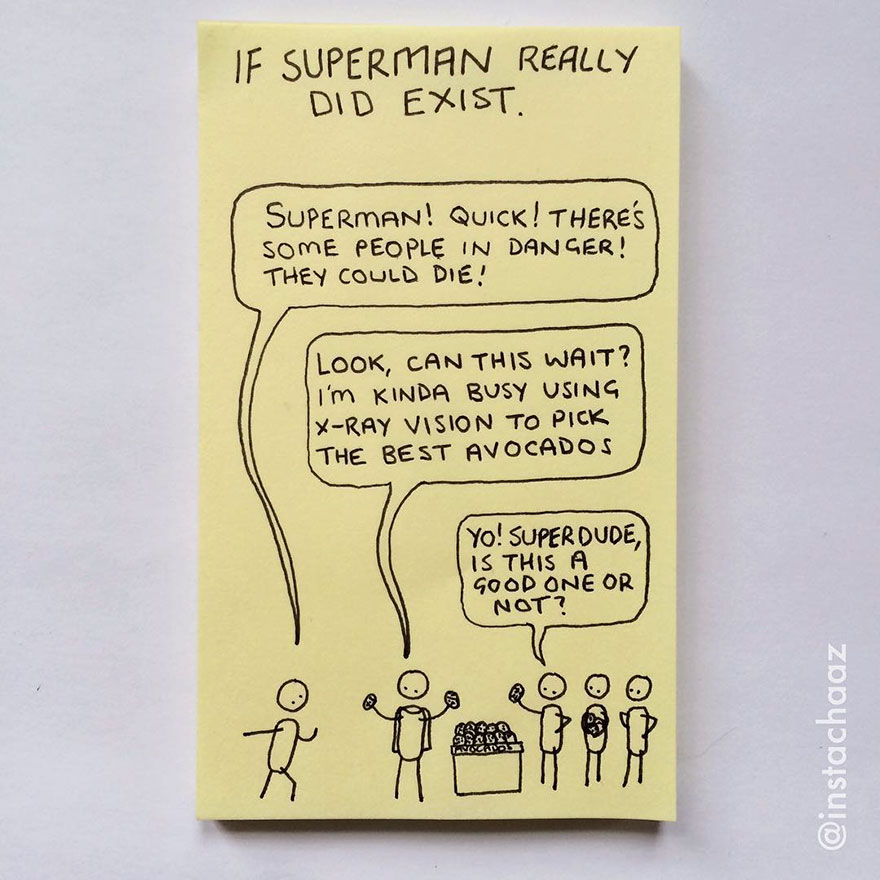 IF SUPERMAN REALLY
DID EXIST.
SUPERMAN! QUICK! THERE'S
SOME PEOPLE IN DANGER!
THEY COULD DIE!
LOOK, CAN THIS WAIT?
I'M KINDA BUSY USING
X-RAY VISION TO PICK
THE BEST AVOCADOS
YO! SUPERDUDE,
IS THIS A
GOOD ONE OR
NOT?
AVOCADOS
@instachaaz